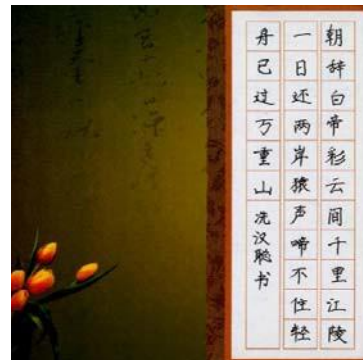 朝辞白帝彩云间千里江陵
一日还两岸猿声啼不住轻
舟已过万重山 冼汉聪书